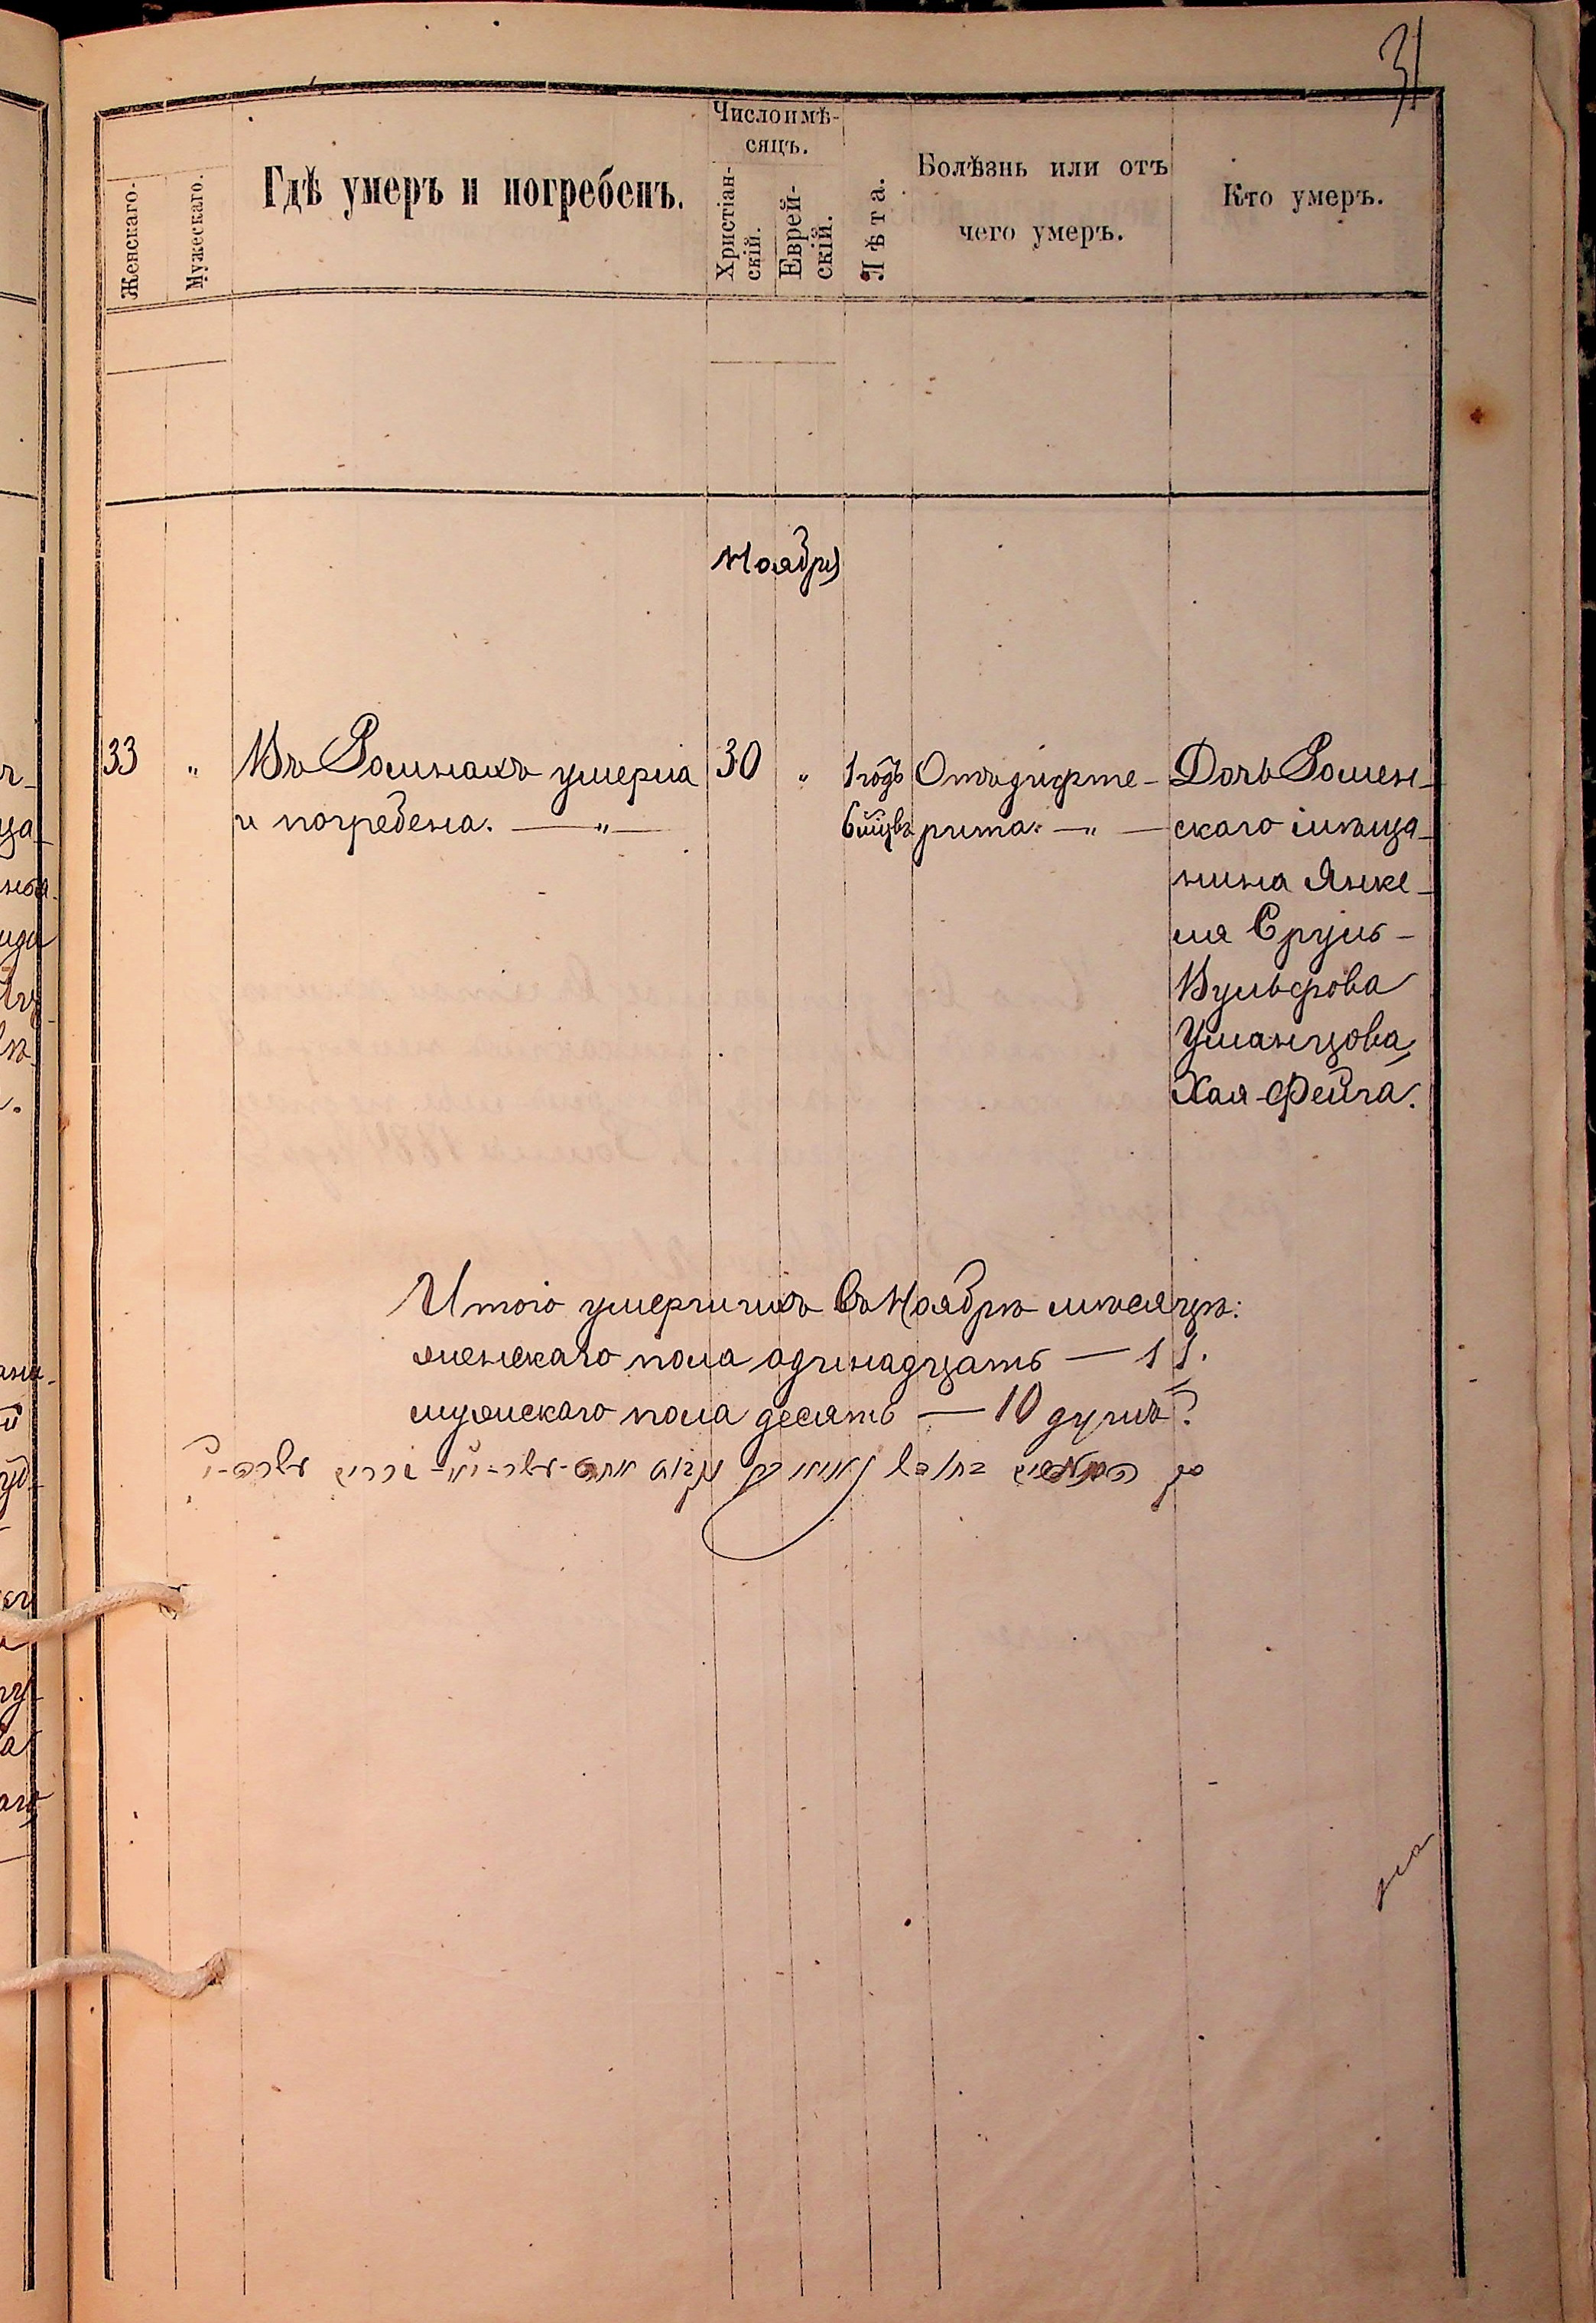 31
Женскаго.
Мужескаго.
Гдѣ умеръ и погребенъ.
Число и мѣ-
сяцъ.
Христіан-
скій.
Еврей-
скій.
Лѣта.
Болѣзнь или отъ
чего умеръ.
Кто умеръ.
Ноября
33 " Въ Ромнахъ умерла 30 " 1 годъ Отъ дифте- Дочь Ромен-
и погребена. — " — 6 мцвъ рита. — " — скаго мѣща-
нина Янке-
ля Сруль-
Вульфова
Уманцова,
Хая-Фейга.
Итого умершихъ въ Ноябрѣ мѣсяцѣ:
женскаго пола одинадцать — 11.
мужскаго пола десять — 10 душъ.